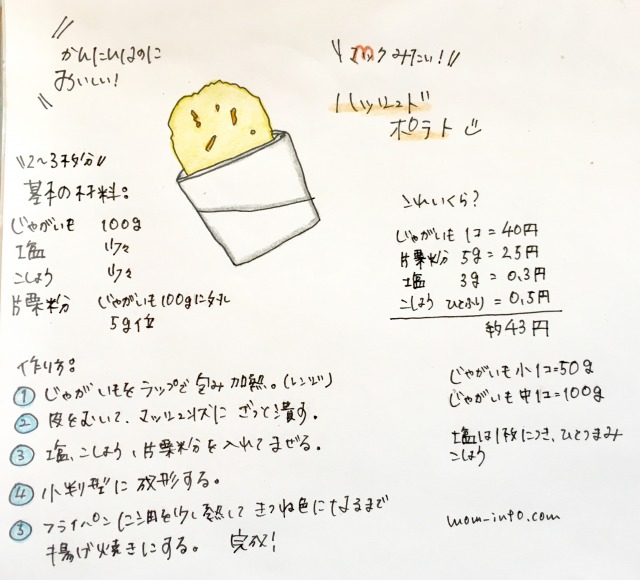 かんたんなのに
おいしい！
マックみたい！
ハッシュド
ポテト
2〜3枚分
基本の材料：
じゃがいも 100g
塩 少々
こしょう 少々
片栗粉 じゃがいも100gに対し
5g位
これいくら？
じゃがいも 1コ = 40円
片栗粉 5g = 2.5円
塩 3g = 0.3円
こしょう ひとふり = 0.5円
約43円
じゃがいも小1コ=50g
じゃがいも中1コ=100g
塩は1枚につき、ひとつまみ
こしょう
作り方：
① じゃがいもをラップで包み加熱。(レンジ)
② 皮をむいて、マッシュ状に ざっと潰す。
③ 塩、こしょう、片栗粉を入れてまぜる。
④ 小判型に成形する。
⑤ フライパンに油を少し熱して きつね色になるまで
揚げ焼きにする。 完成！
mom-info.com